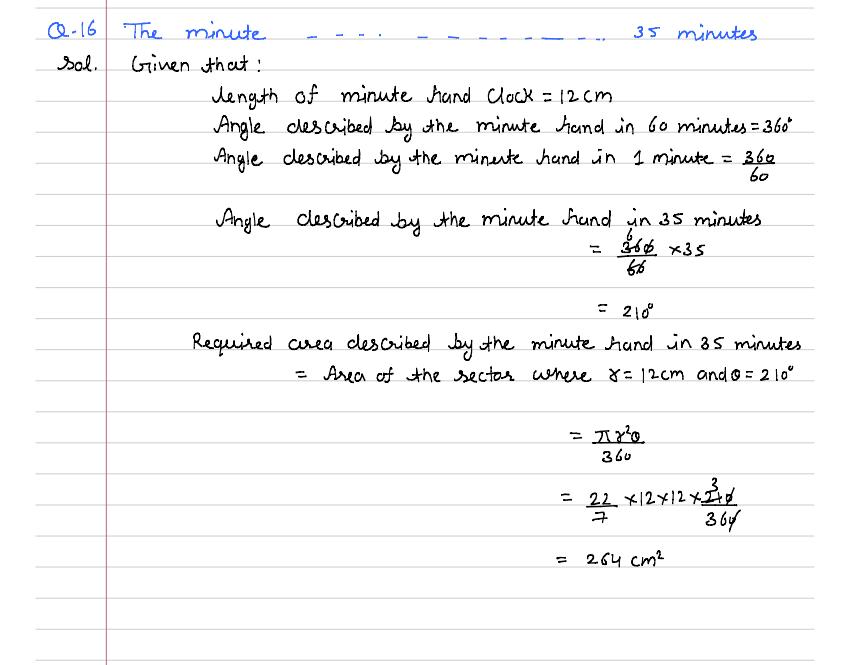 Q-16 The minute ---- -------- 35 minutes
Sol. Given that :
Length of minute hand Clock = 12 cm
Angle described by the minute hand in 60 minutes = 360°
Angle described by the minute hand in 1 minute = 360/60
Angle described by the minute hand in 35 minutes
6
= 360/60 ×35
= 210°
Required area described by the minute hand in 35 minutes
= Area of the sector where r = 12cm and θ = 210°
= πr²θ/360
3
= 22/7 ×12×12× 210/360
= 264 cm²